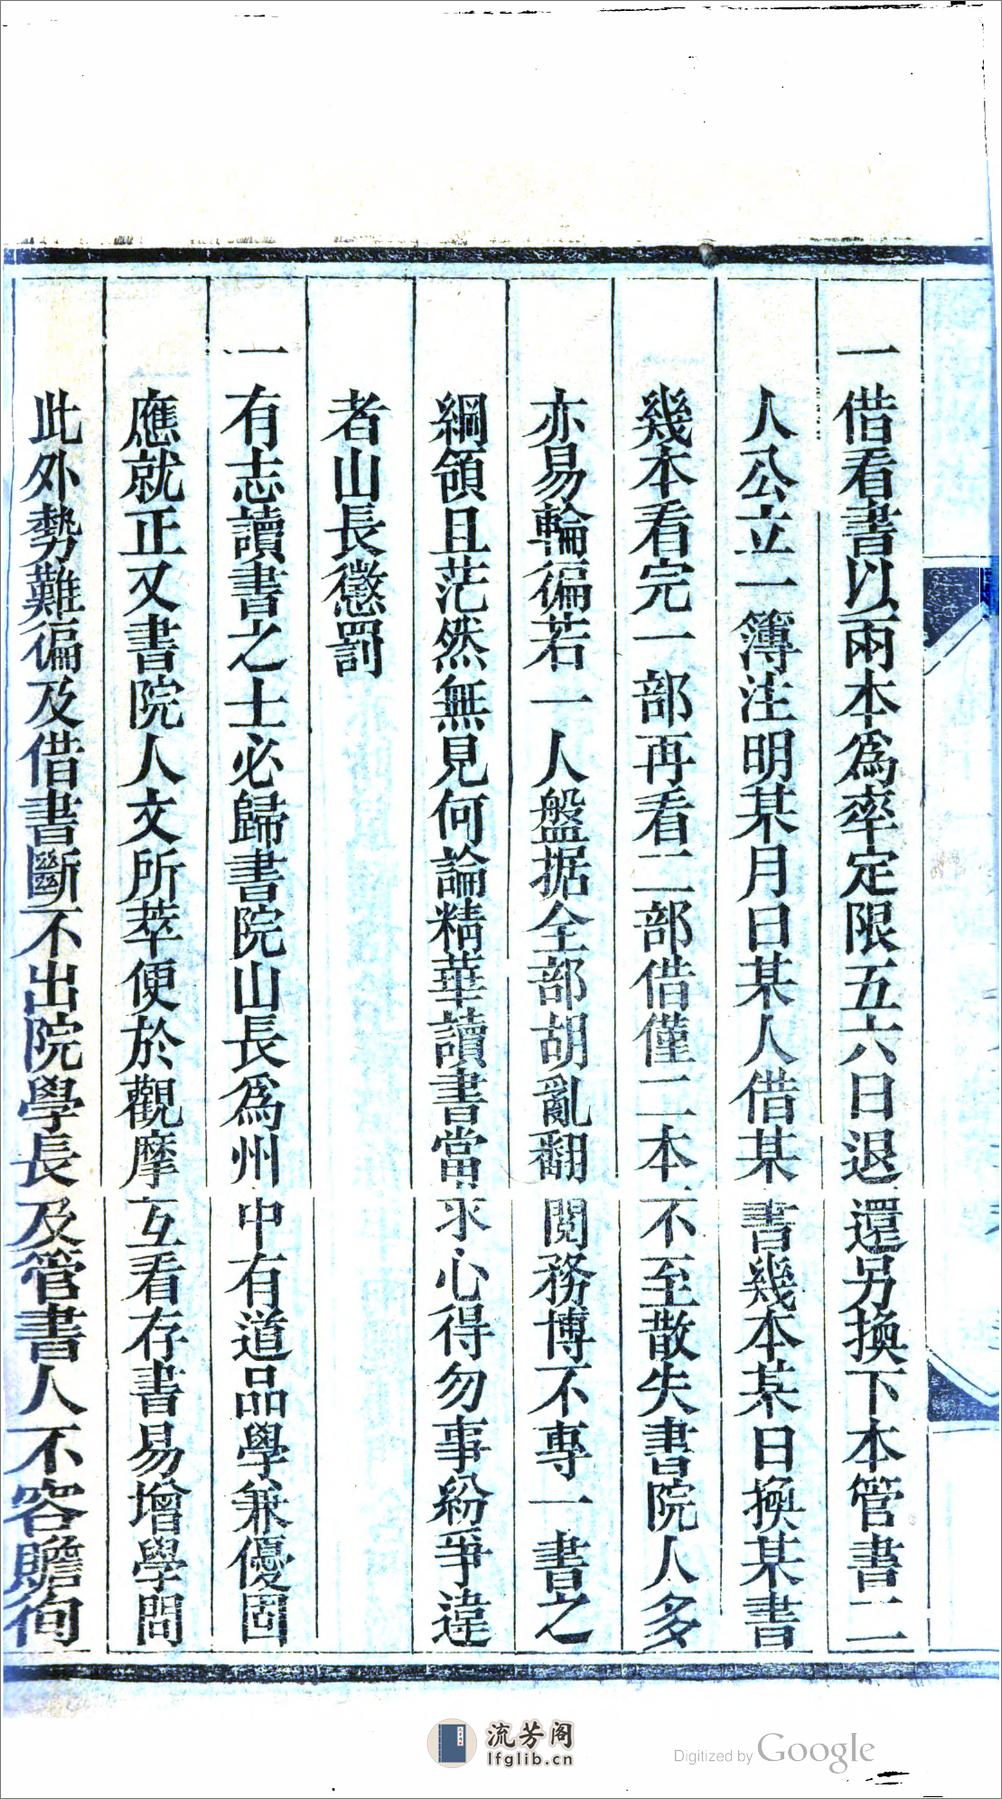 一借看書以兩本爲率定限五六日退還另換下本管書二
人公立一簿注明某月日某人借某書幾本某日換某書
幾本看完一部再看二部借僅二本不至散失書院人多
亦易輪徧若一人盤据全部胡亂翻閱務博不專一書之
綱領且茫然無見何論精華讀書當求心得勿事紛爭違
者山長懲罰
一有志讀書之士必歸書院山長爲州中有道品學兼優固
應就正又書院人文所萃便於觀摩互看存書易增學問
此外勢難徧及借書斷不出院學長及管書人不容瞻徇
流芳阁
lfglib.cn
Digitized by Google